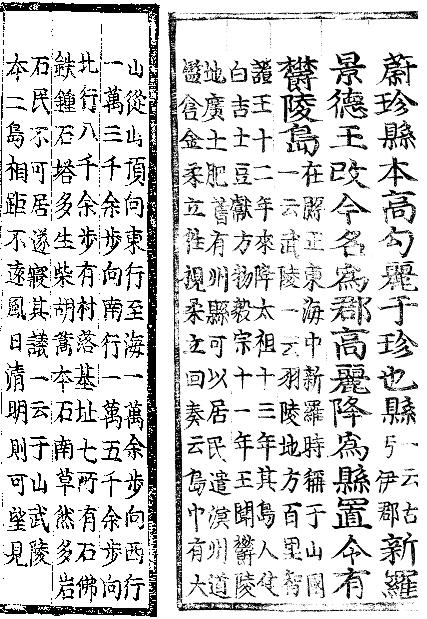 蔚珍縣本高勾麗于珍也縣一云古亏伊郡新羅
景德王改今名爲郡高麗降爲縣置令有
鬱陵島在縣正東海中新羅時稱于山國
一云武陵一云羽陵地方百里智
證王十二年來降太祖十三年其島人使
白吉士豆獻方物毅宗十一年王聞鬱陵
地廣土肥舊有州縣可以居民遣溟州道
監倉金柔立往視柔立回奏云島中有大
山從山頂向東行至海一萬余步向西行
一萬三千余步向南行一萬五千余步向
北行八千余步有村落基址七所有石佛
鉄鍾石塔多生柴胡蒿本石南草然多岩
石民不可居遂寢其議一云于山武陵
本二島相距不遠風日清明則可望見